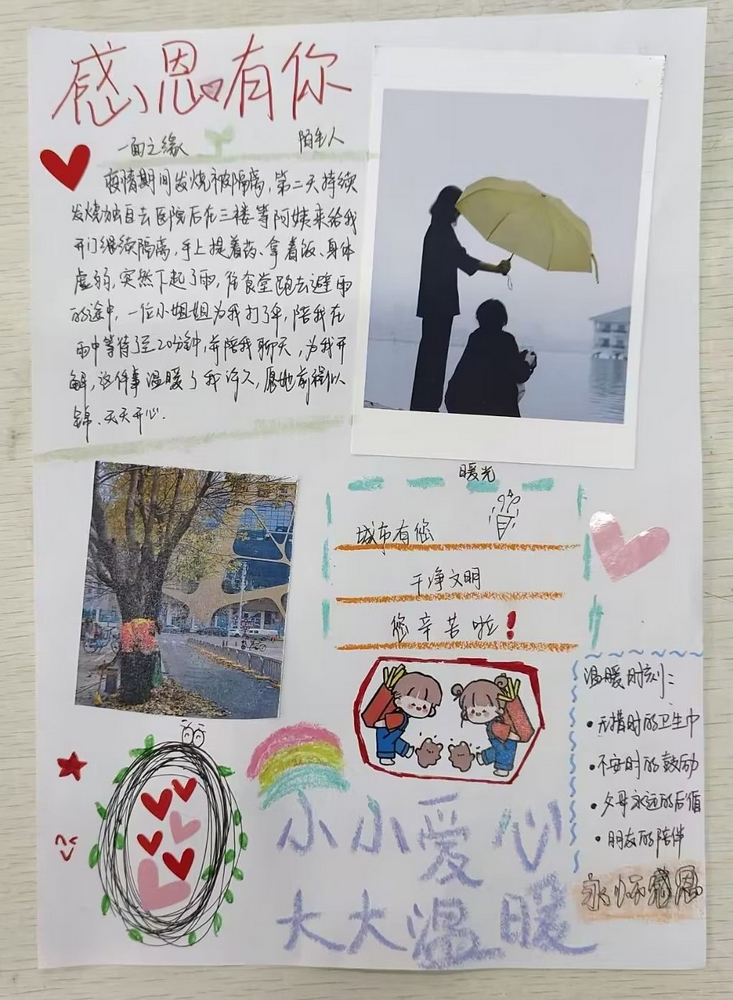 感恩有你
一面之缘 陌生人
疫情期间发烧被隔离，第二天持续
发烧独自去医院后在三楼等阿姨来给我
开门继续隔离，手上提着药、拿着饭、身体
虚弱，突然下起了雨，食堂跑去避雨
的途中，一位小姐姐为我打了伞，陪我在
雨中等待了至20分钟，并陪我聊天，为我开
解，这件事温暖了我许久，愿她前程似
锦、天天开心.
暖光
城市有您
干净文明
您辛苦啦！
温暖时刻：
• 无措时的卫生巾
• 不安时的鼓励
• 父母永远的后盾
• 朋友的陪伴
永怀感恩
小小爱心
大大温暖